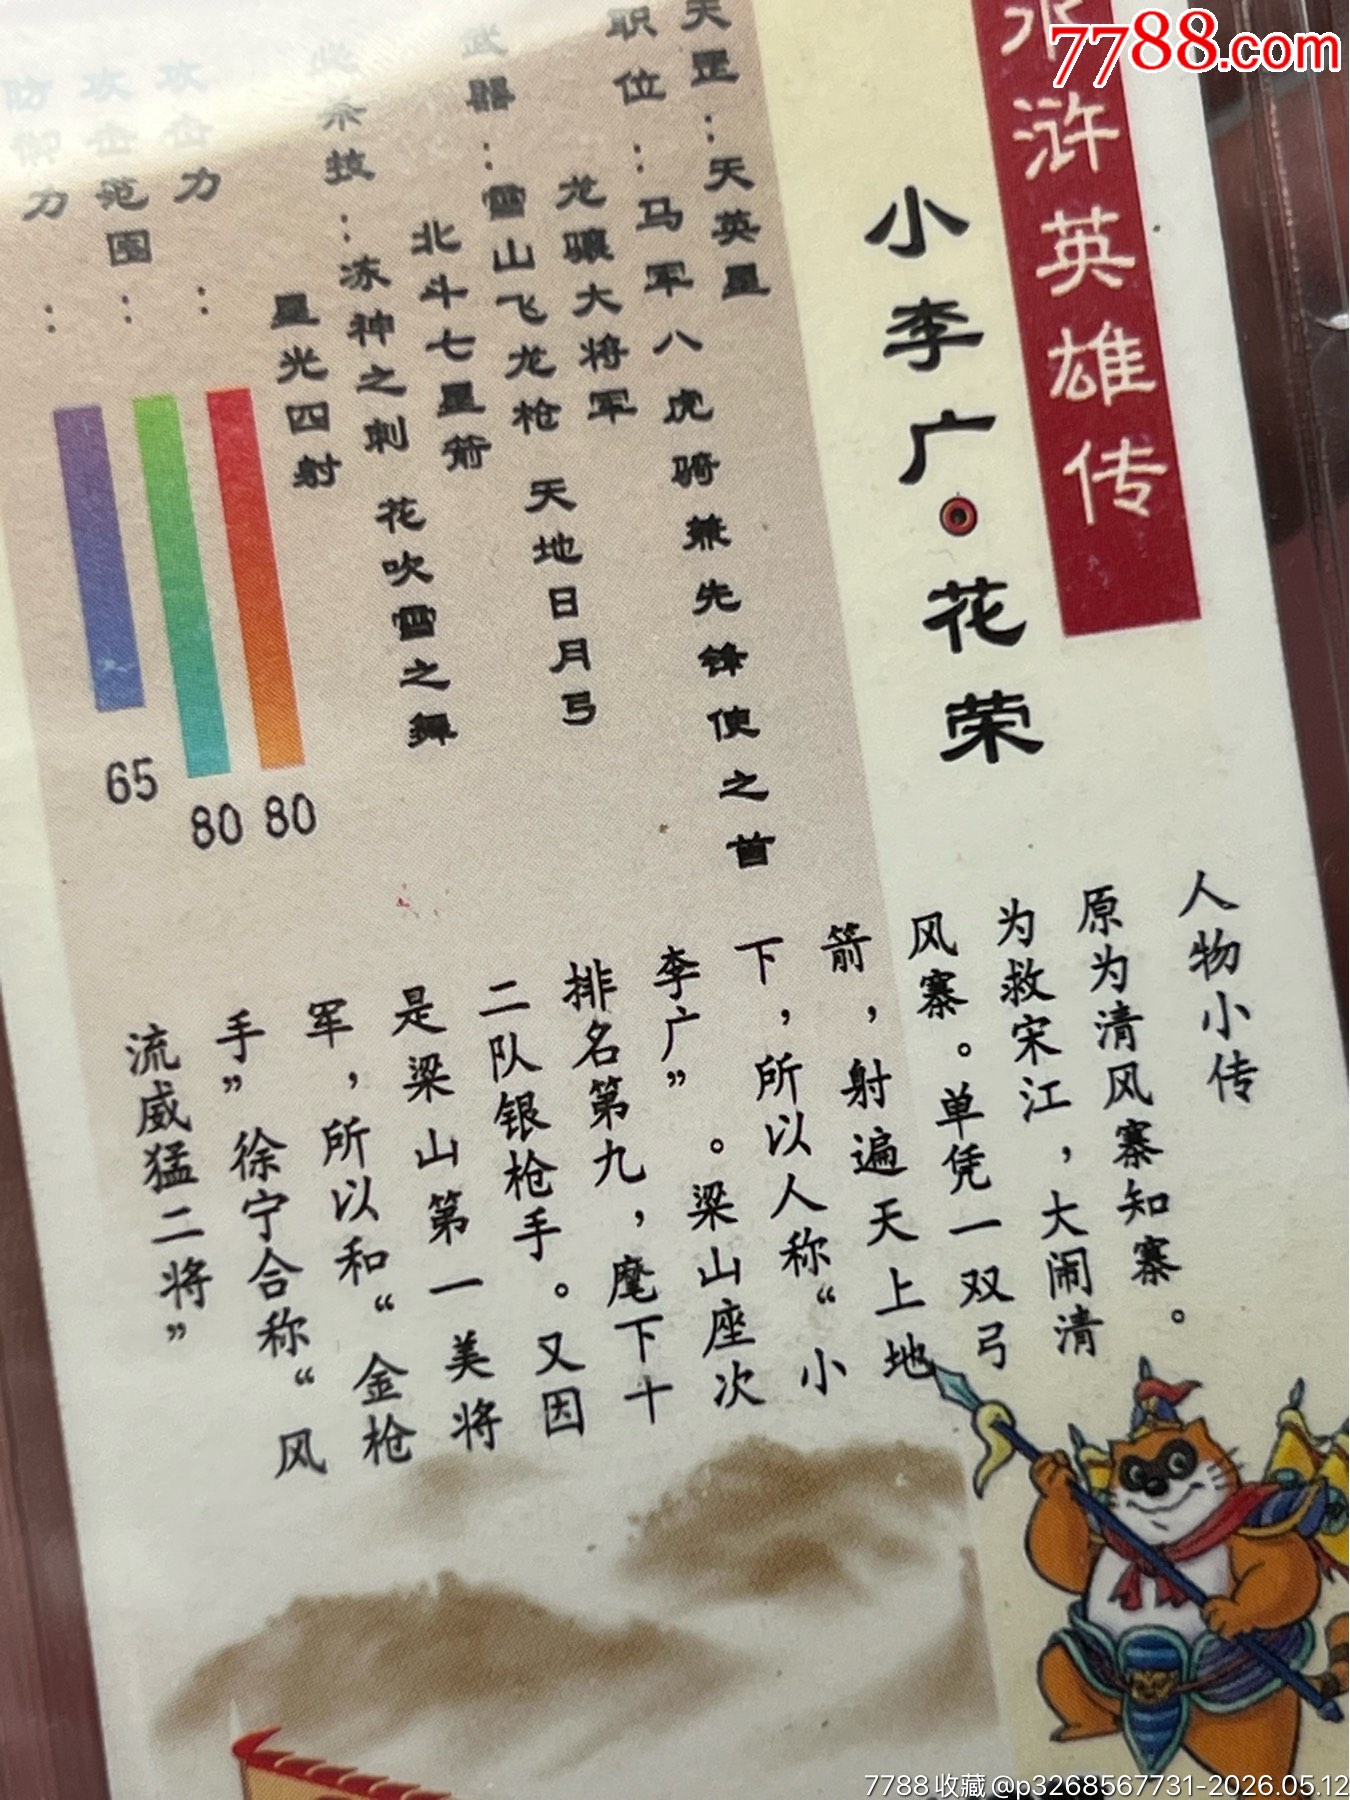 7788.com
水浒英雄传
小李广·花荣
天罡：天英星
职位：马军八虎骑兼先锋使之首
龙骧大将军
武器：雪山飞龙枪 天地日月弓
北斗七星箭
必杀技：冻神之刺 花吹雪之舞
星光四射
攻击力：80
攻击范围：80
防御力：65
人物小传
原为清风寨知寨。
为救宋江，大闹清
风寨。单凭一双弓
箭，射遍天上地
下，所以人称“小
李广”。梁山座次
排名第九，麾下十
二队银枪手。又因
是梁山第一美将
军，所以和“金枪
手”徐宁合称“风
流威猛二将”
7788收藏@p3268567731-2026.05.12